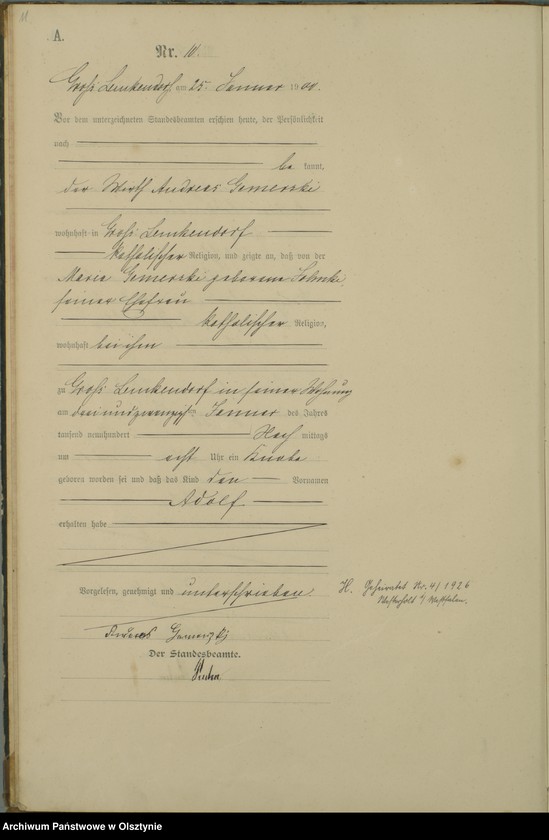 A.
Nr. 10.
Groß Lemkendorf am 25. Januar 1900.
Vor dem unterzeichneten Standesbeamten erschien heute, der Persönlichkeit
nach
be kannt,
der Wirth Andreas
wohnhaft in Groß Lemkendorf
katholischer Religion, und zeigte an, daß von der
Maria geborene
seiner Ehefrau
katholischer Religion,
wohnhaft bei ihm
zu Groß Lemkendorf in seiner Wohnung
am dreiundzwanzigsten Januar des Jahres
tausend neunhundert Nach mittags
um acht Uhr ein Knabe
geboren worden sei und daß das Kind den Vornamen
Adolf
erhalten habe
Vorgelesen, genehmigt und unterschrieben
H. Geheiratet Nr. 4/1926
Westerholt i/ Westfalen.
Der Standesbeamte.
Archiwum Państwowe w Olsztynie